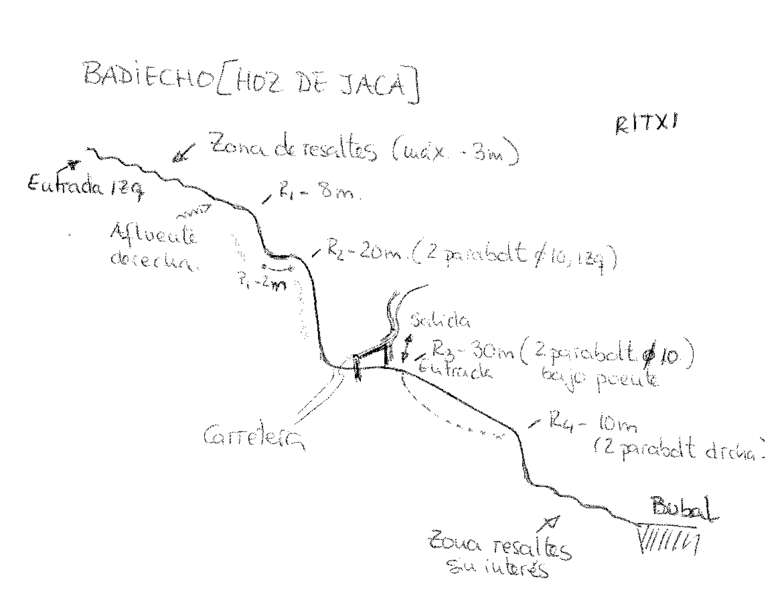 BADIECHO [HOZ DE JACA]
RITXI
Zona de resaltes (máx. -3m)
Entrada izq
R1 - 8m.
Afluente
derecha.
R2 - 20m. (2 parabolt ø10, izq)
P1 - 2m
Salida
R3 - 30m (2 parabolt ø10)
Entrada bajo puente
Carretera
R4 - 10m
(2 parabolt drcha.
Bubal
Zona resaltes
sin interés